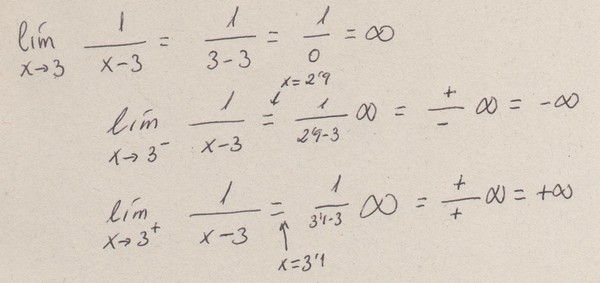 lím x→3 1/(x-3) = 1/(3-3) = 1/0 = ∞
x=2'9
lím x→3⁻ 1/(x-3) = 1/(2'9-3) ∞ = +/- ∞ = -∞
lím x→3⁺ 1/(x-3) = 1/(3'1-3) ∞ = +/+ ∞ = +∞
x=3'1